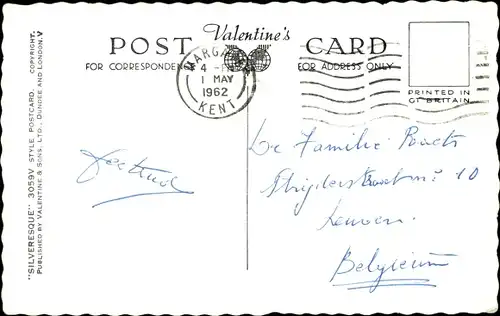 Valentine's
POST CARD
FOR CORRESPONDENCE
FOR ADDRESS ONLY
MARGATE
4 - PM
1 MAY
1962
KENT
PRINTED IN
GT BRITAIN
"SILVERESQUE" 3059V STYLE POSTCARD. COPYRIGHT.
PUBLISHED BY VALENTINE & SONS, LTD., DUNDEE AND LONDON. V
Gertrud
De Familie
10
Leuven.
Belgieum